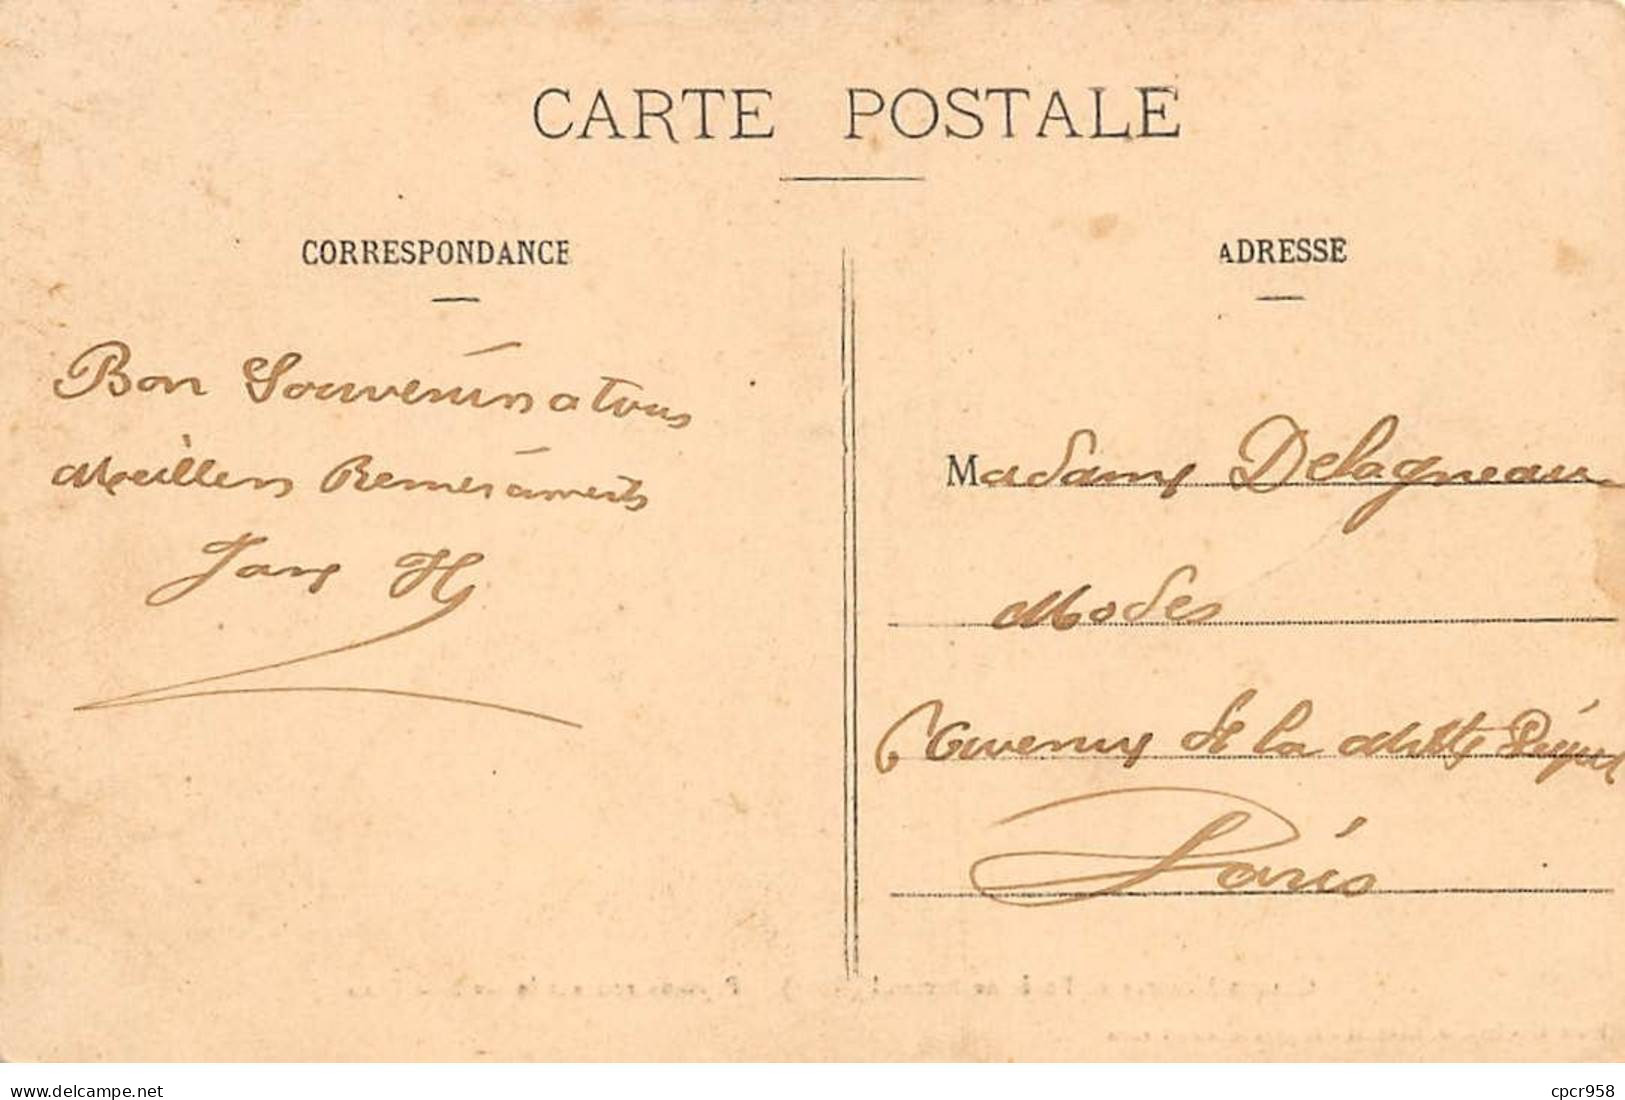 CARTE POSTALE
CORRESPONDANCE
Bon Souvenir a tous
Meilleurs Remerciements
H
ADRESSE
Madame Delagneau
Modes
Avenue de la Motte Piquet
Paris
www.delcampe.net
cpcr958